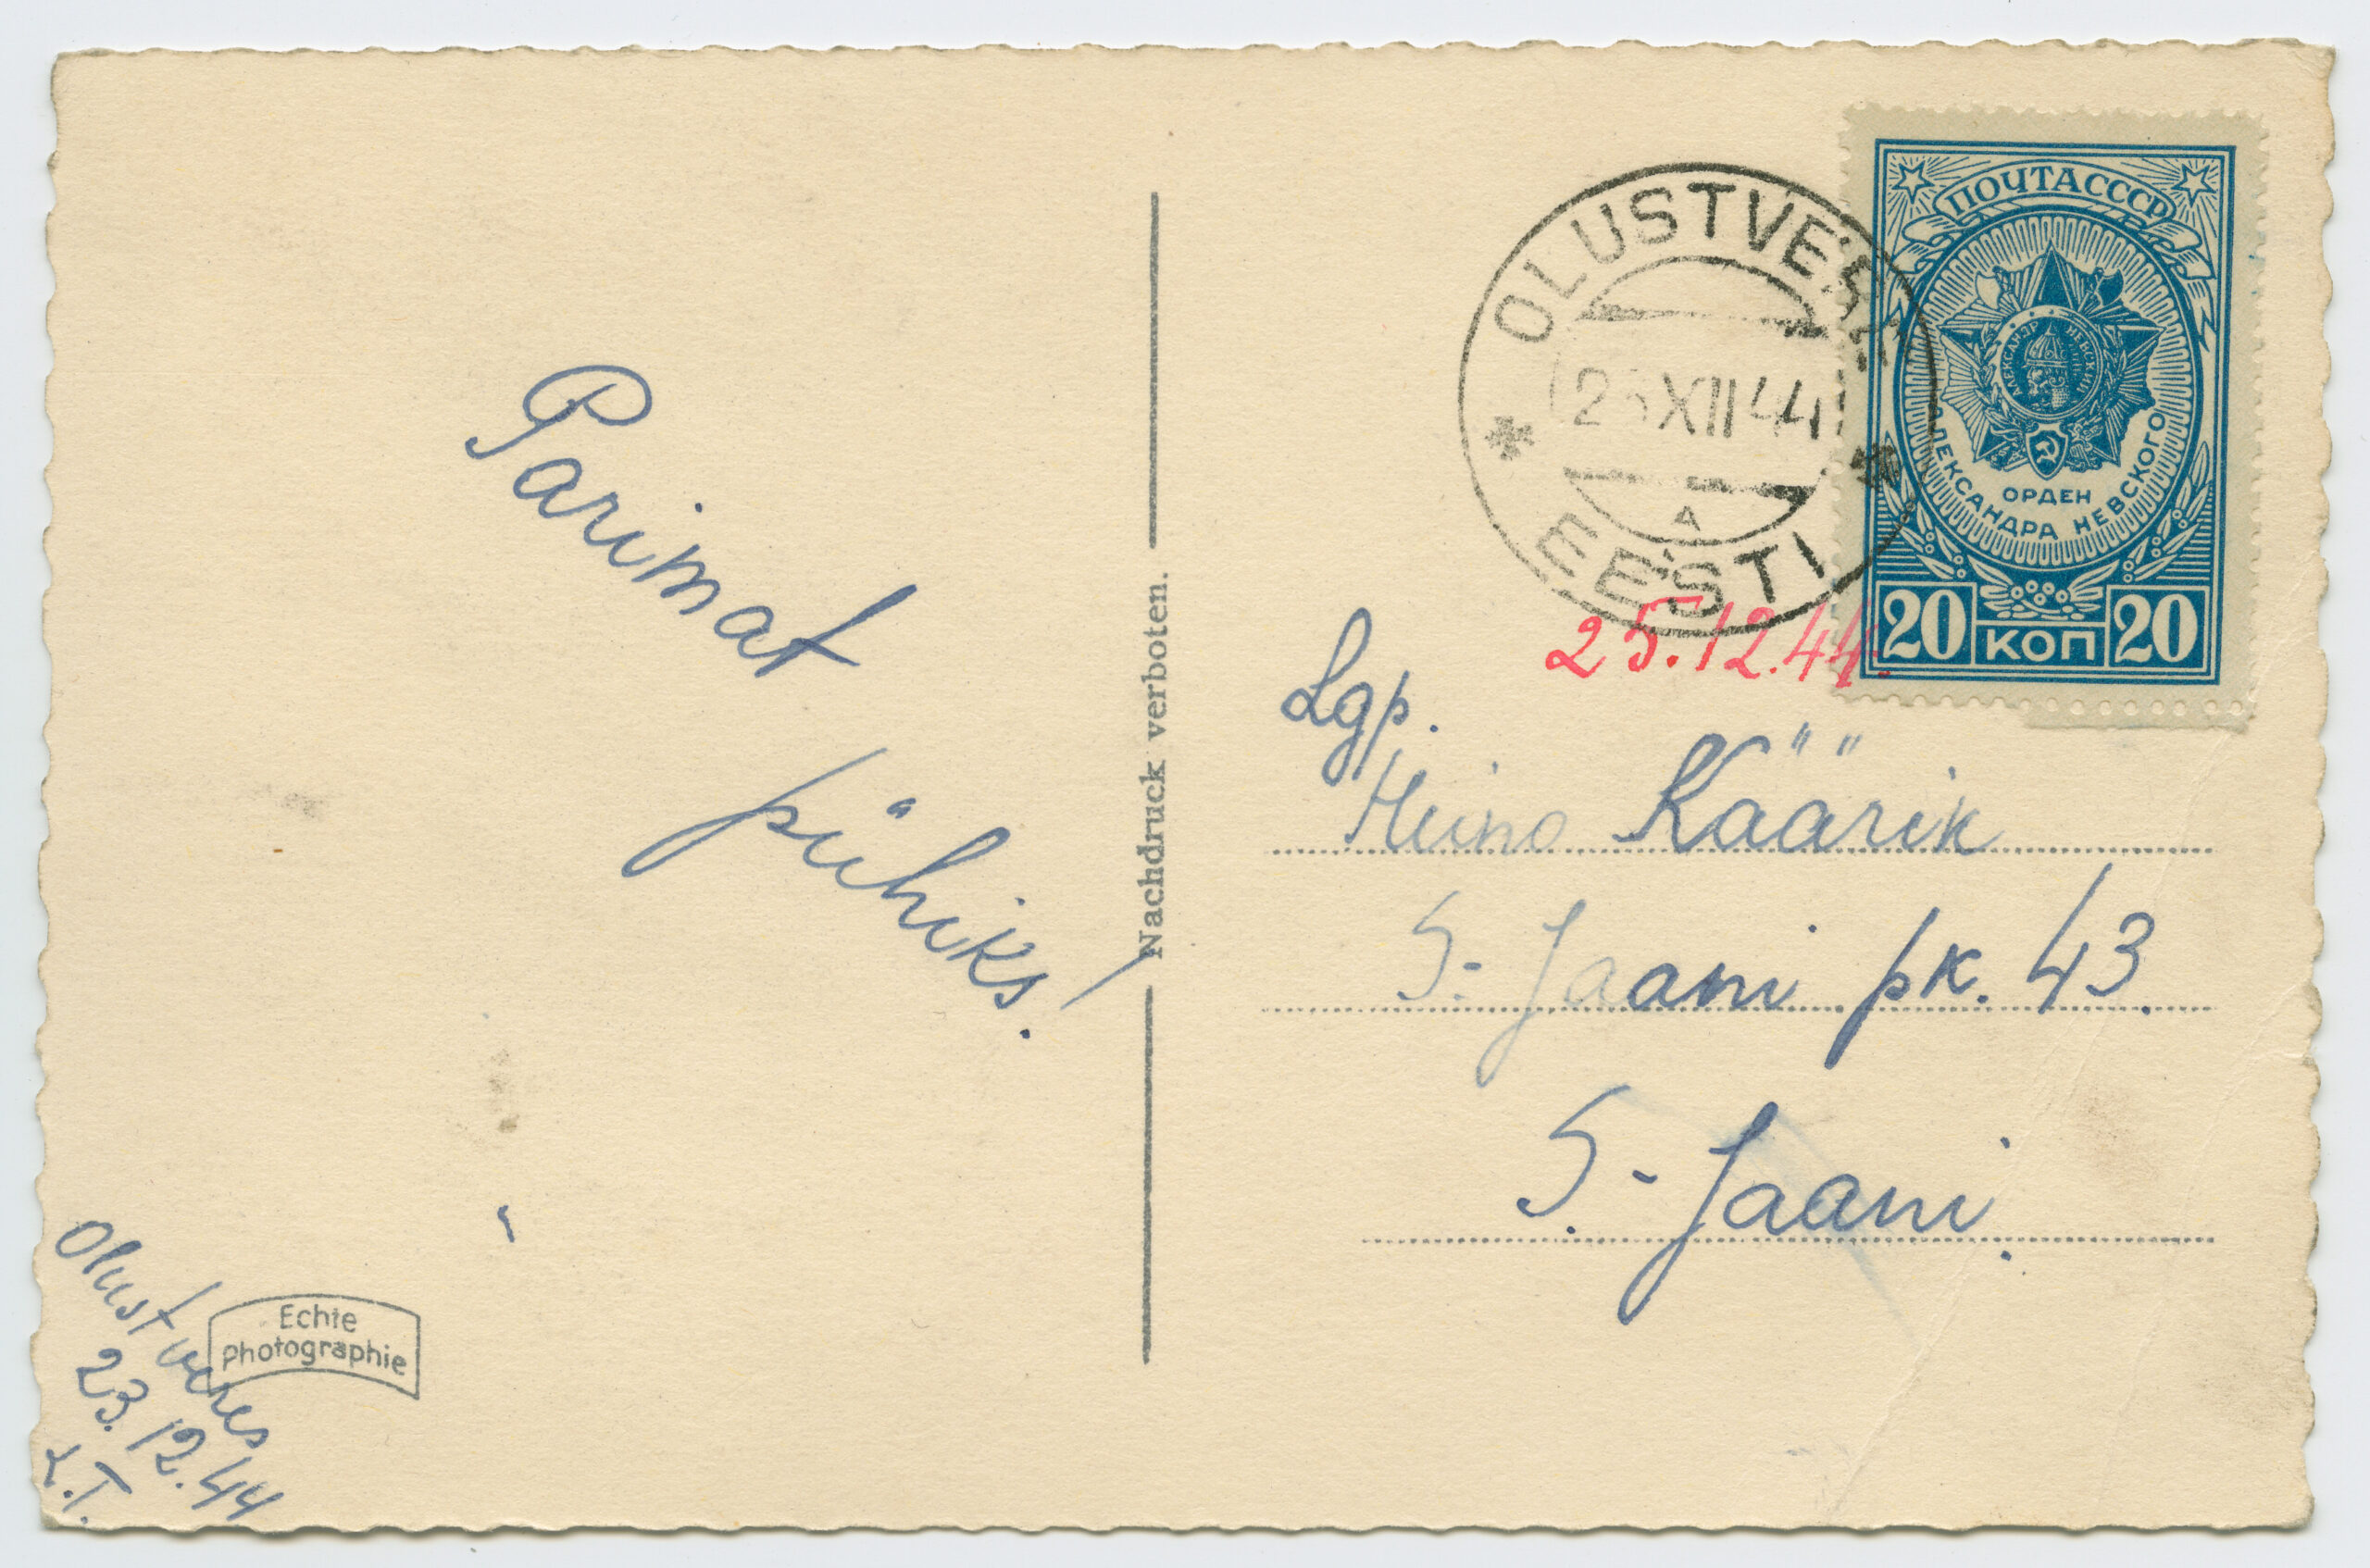 Parimat
pühiks!
Olustveres
23.12.44
L.T.
Echte
Photographie
Nachdruck verboten.
OLUSTVERE
XII 44
A
EESTI
25.12.44.
ПОЧТА СССР
АЛЕКСАНДР НЕВСКИЙ
ОРДЕН
АЛЕКСАНДРА НЕВСКОГО
20 КОП 20
Lgp.
Heino Käärik
S-Jaani pk. 43
S-Jaani.